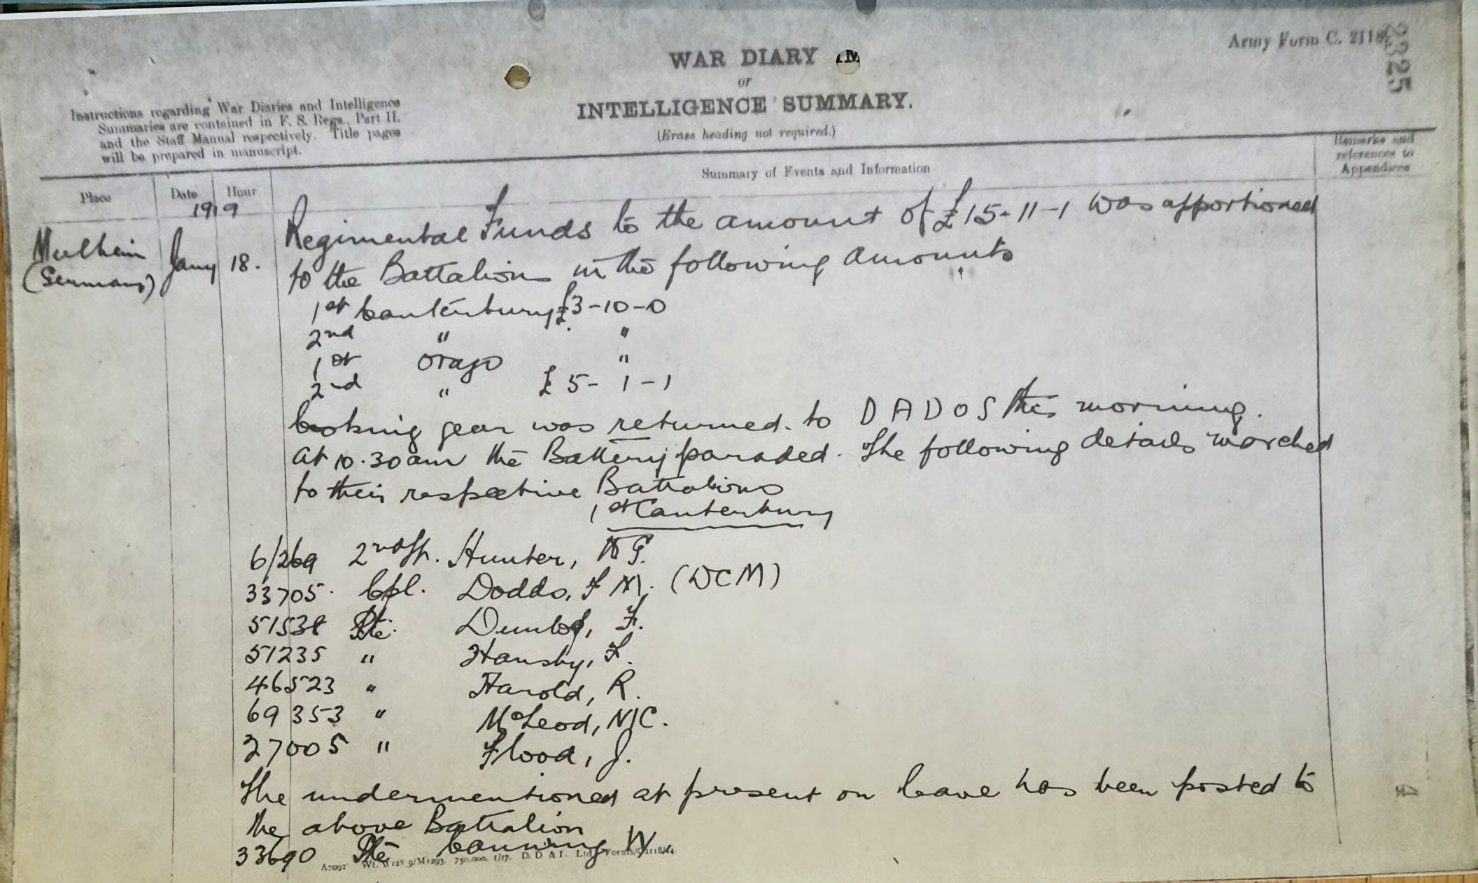 Army Form C. 2118.
2325
WAR DIARY
or
INTELLIGENCE SUMMARY.
(Erase heading not required.)
Instructions regarding War Diaries and Intelligence
Summaries are contained in F. S. Regs., Part II.
and the Staff Manual respectively. Title pages
will be prepared in manuscript.
Place
Date
Hour
Summary of Events and Information
Remarks and
references to
Appendices
1919
Mulheim
(Germany)
Jany 18.
Regimental Funds to the amount of £15-11-1 was apportioned
to the Battalions in the following amounts
1st Canterbury £3-10-0
2nd " "
1st Otago "
2nd " £5-1-1
Cooking gear was returned to DADOS this morning.
At 10.30am the Battery paraded. The following details marched
to their respective Battalions
1st Canterbury
6/269 2nd Hunter, G.
33705. Cpl. Dodds, F M. (DCM)
51538 Pte. Dunlop, F.
51235 " Hansby, F.
46523 " Harold, R.
69353 " McLeod, N/C.
27005 " Flood, J.
The undermentioned at present on leave has been posted to
the above Battalion
33690 Pte Canning W.
A7092 Wt. W125 9/M1293 750,000. 1/17. D. D & I. Ltd. Forms/C2118/14.